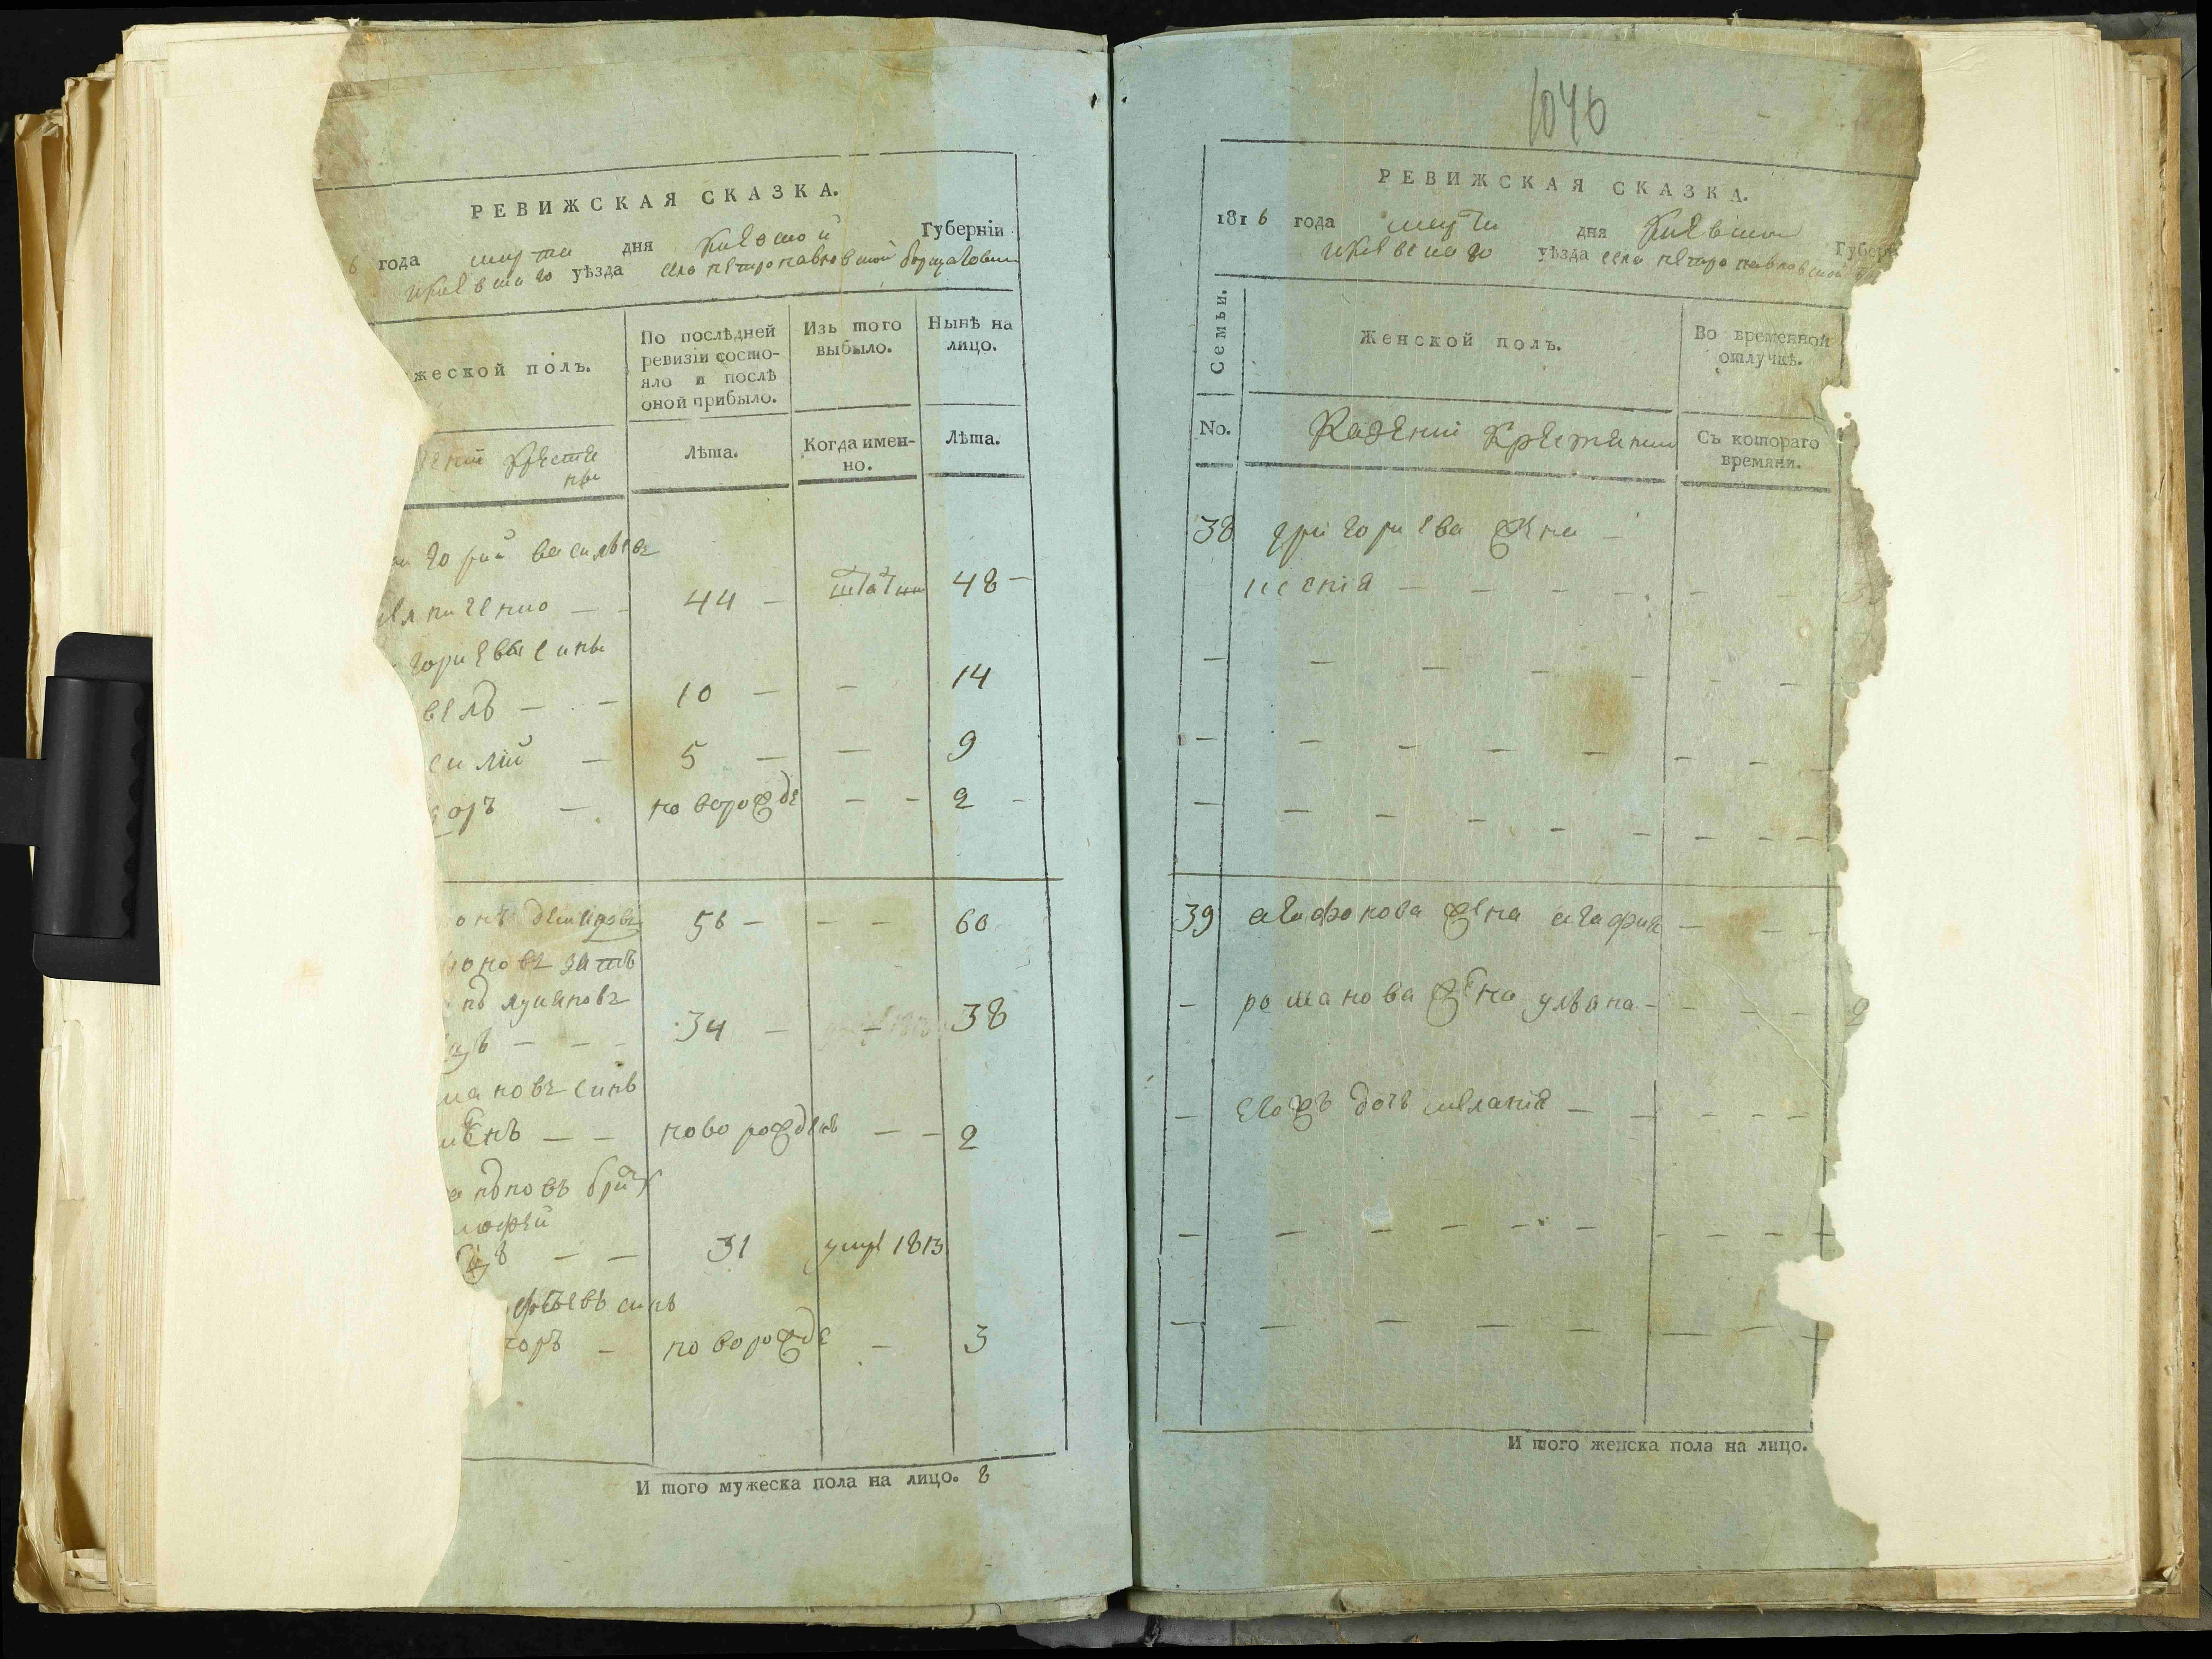 РЕВИЖСКАЯ СКАЗКА.
6 года марта дня Киевской Губерніи
Киевскаго уѣзда села петропавловской борщаговки
жеской полъ.
По послѣдней
ревизіи состо-
яло и послѣ
оной прибыло.
Изъ того
выбыло.
Нынѣ на
лицо.
Лѣта.
Когда имен-
но.
Лѣта.
крестя
не
горий василъевъ
44 — 48 —
гориевы сины
велъ — — 10 — — 14
силий — 5 — — 9
доръ — новорожде — — 2 —
онъ демидовъ 56 — — — 60
оновъ зять
лукяновъ
34 — — 38
мановъ синъ
менъ — — новорожденъ — — 2
брат
мофей
— — 31 умре 1813
фѣевъ синъ
горъ — новорожде — 3
И того мужеска пола на лицо. 8
1046
РЕВИЖСКАЯ СКАЗКА.
1816 года марта дня Киевской Губерн
Киевскаго уѣзда села петропавловской
Семьи.
Женской полъ.
Во временной
отлучкѣ.
No.
Казенніи крестянки
Съ котораго
времяни.
38 григориева жена —
ксенія — — — — — —
— — — — — — —
— — — — — — — —
— — — — — — — — —
39 агафонова жена агафия — — —
— романова жена уляна — — — —
— егожъ дочъ меланія — — — — —
— — — — — — — — — —
— — — — — — — —
И того женска пола на лицо.